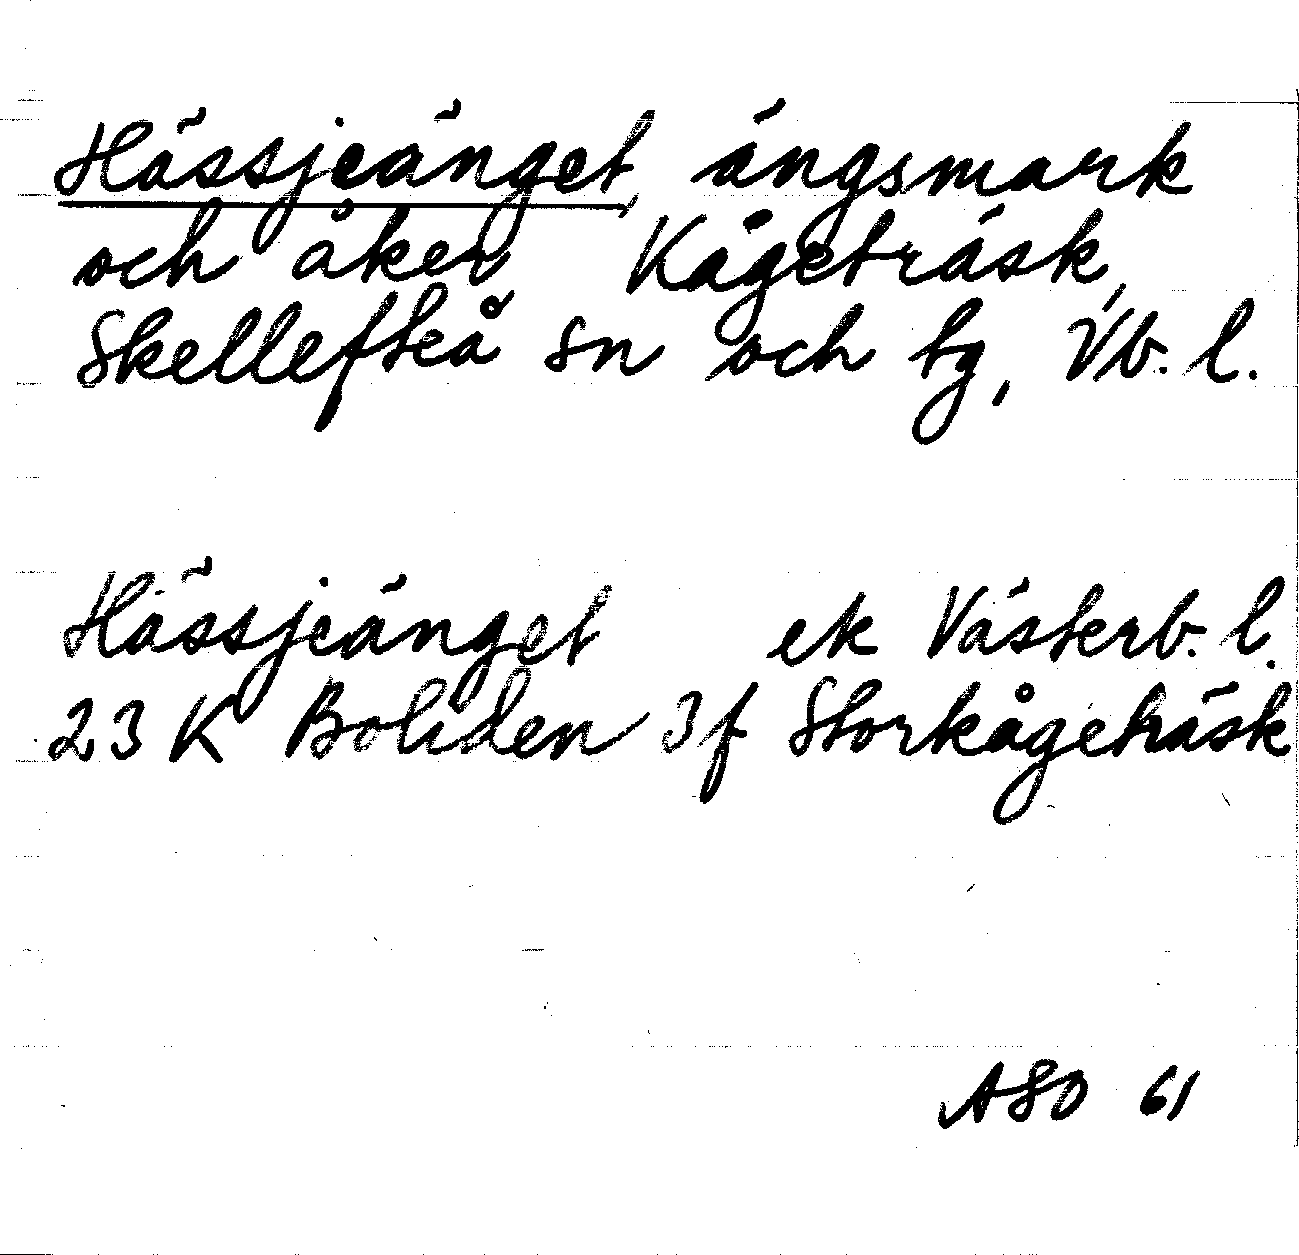 Hässjeänget, ängsmark
och åker, Kågeträsk,
Skellefteå sn och tg, Vb. l.
Hässjeänget ek Västerb. l.
23 K Boliden 3f Storkågeträsk
ASO 61